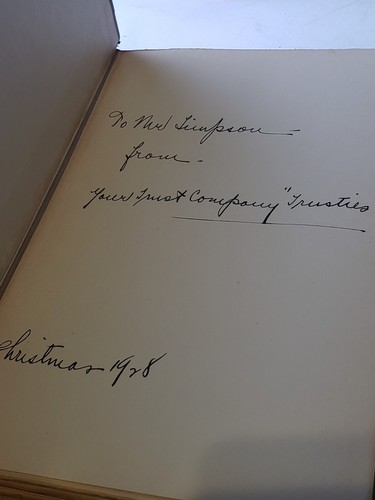 To Mr Simpson —
from -
Your Trust Company "Trusties
Christmas 1928